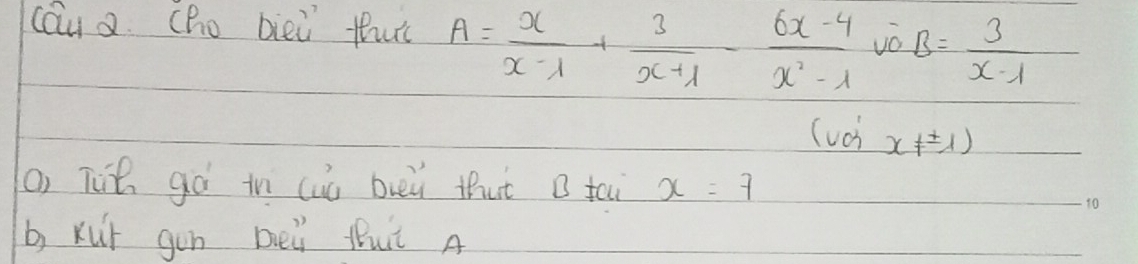 Câu 2. Cho biểu thức A = x/(x-1) + 3/(x+1) - (6x-4)/(x²-1) và B = 3/(x-1)
(với x ≠ ±1)
a) Tính giá trị của biểu thức B tại x = 7
10
b) Rút gọn biểu thức A